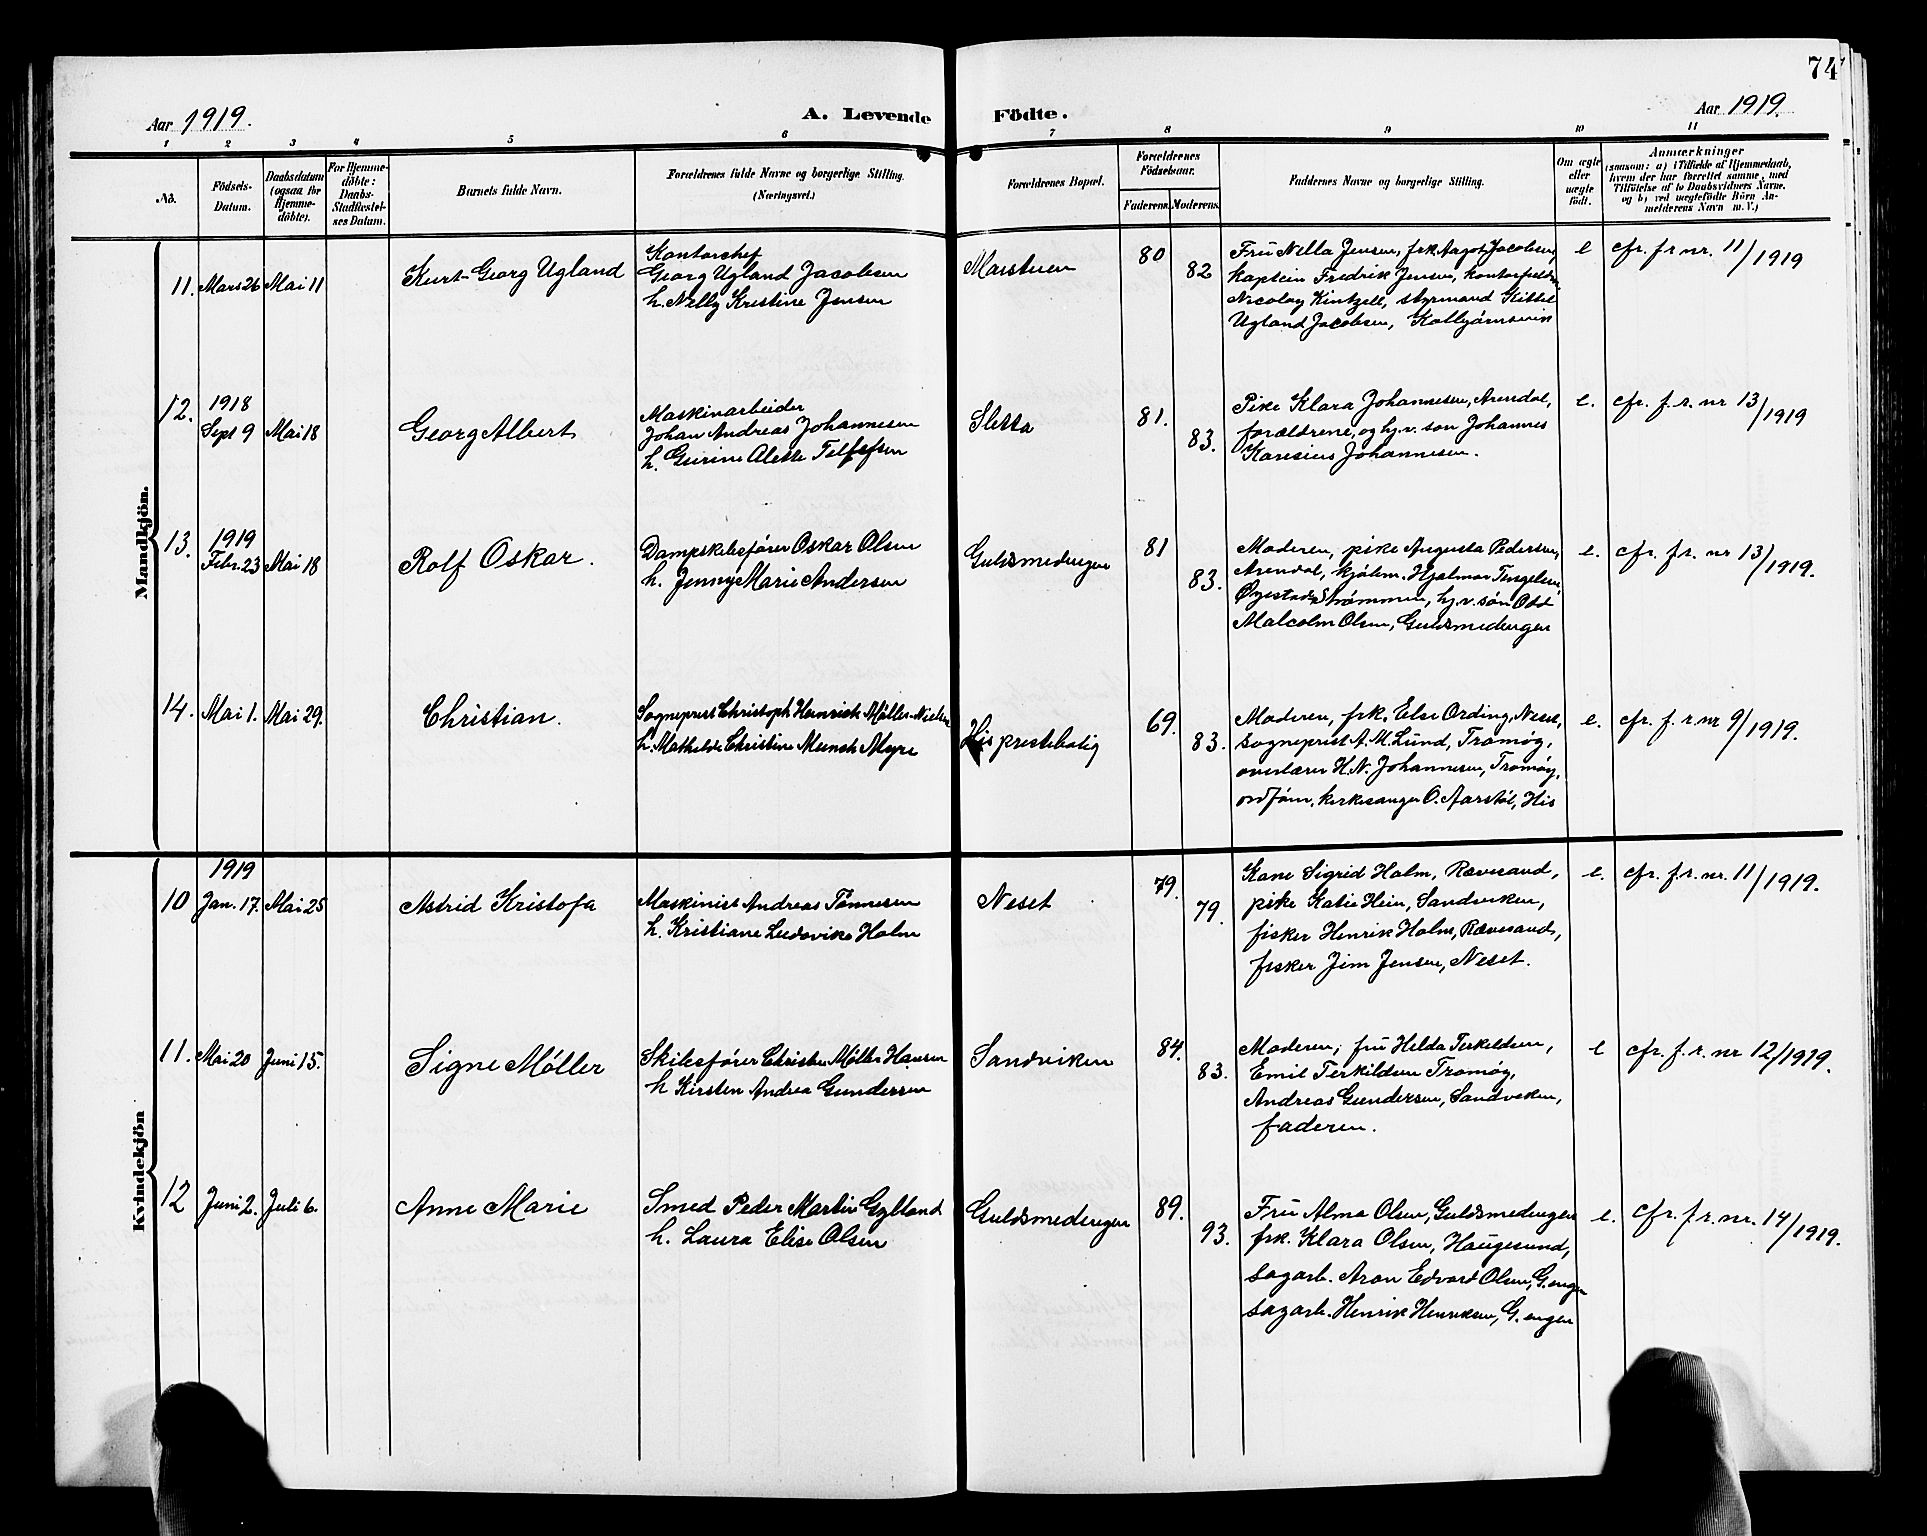 74
Aar 1919.
A. Levende
Födte.
Aar 1919.
1 2 3 4 5 6 7 8 9 10 11
No.
Födsels-
Datum.
Daabsdatum
(ogsaa for
Hjemme-
döbte).
For Hjemme-
döbte:
Daabs-
Stadfæstel-
ses Datum.
Barnets fulde Navn.
Forældrenes fulde Navne og borgerlige Stilling.
(Næringsvei.)
Forældrenes Bopæl.
Forældrenes
Födselsaar.
Faderens. Moderens.
Faddernes Navne og borgerlige Stilling.
Om ægte
eller
uægte
født.
Anmærkninger
(saasom: a) i Tilfælde af Hjemmedaab,
hvem der har forrettet samme, med
Tilføielse af to Daabsvidners Navne,
og b) ved uægtefödte Börn An-
melderens Navn m. V.)
Mandkjön.
11. Mars 26 Mai 11
Kurt-Georg Ugland
Kontorchef
Georg Ugland Jacobsen
h. Nelly Kristine Jensen
80
82
Fru Nella Jensen, frk. Aagot Jacobsen,
kaptein Fredrik Jensen,
Nicolay Kintzell, styrmand Kittel
Ugland Jacobsen,
e
cfr. fr nr. 11/1919
12. 1918
Sept 9 Mai 18
Georg Albert
Maskinarbeider
Johan Andreas Johannesen
h. Gurine Alette
Sletta
81.
83.
Pike Klara Johannesen, Arendal,
forældrene, og hj.v. søn Johannes
Johannesen.
e.
cfr. f.r. nr 13/1919
13. 1919
Febr. 23 Mai 18
Rolf Oskar.
Dampskibsfører Oskar Olsen
h. Jenny Marie Andersen
Guldsmedengen
81
83.
Moderen, pike Augusta Pedersen,
Arendal, Hjalmar
Øyestad, Strømmen, hj.v. søn Odd
Malcolm Olsen, Guldsmedengen
e.
cfr. fr. nr 13/1919.
14. Mai 1. Mai 29.
Christian.
Sogneprest Christoph Heinrich Møller-Nielsen
h. Mathilde Christine Munch Myre
His prestebolig
69.
83.
Moderen, frk. Else Ording, Neset,
sogneprest A. M. Lund, Tromøy,
overlærer H.N. Johannesen, Tromøy,
ordfører, kirkesanger O. Aarstøl, His
e.
cfr. f.r. nr 9/1919.
Kvindekjön
1919
10 Jan. 17. Mai 25
Astrid Kristofa
Maskinist Andreas Tønnesen
h. Kristiane Ludovika Holm
Neset
79.
79.
Kone Sigrid Holm, Revesand,
pike Katie Hein, Sandviken,
fisker Henrik Holm, Rævesand,
fisker Jim Jensen, Neset.
e.
cfr. f.r. nr. 11/1919.
11. Mai 20 Juni 15.
Signe Møller
Skibsfører Christen Møller Hansen
h Kirsten Andrea Gundersen
Sandviken
84.
83.
Moderen, fru Helda Terkildsen,
Emil Terkildsen Tromøy,
Andreas Gundersen, Sandviken,
faderen.
e
cfr. f.r. nr 12/1919.
12 Juni 2. Juli 6.
Anne Marie
Smed Peder Martin Gylland
h. Laura Elise Olsen
Guldsmedengen
89.
93.
Fru Alma Olsen, Guldsmedengen
frk. Klara Olsen, Haugesund,
sagarb. Aron Edvard Olsen, G.engen
sagarb. Henrik Henriksen, G.engen
e.
cfr. f.r. nr. 14/1919.